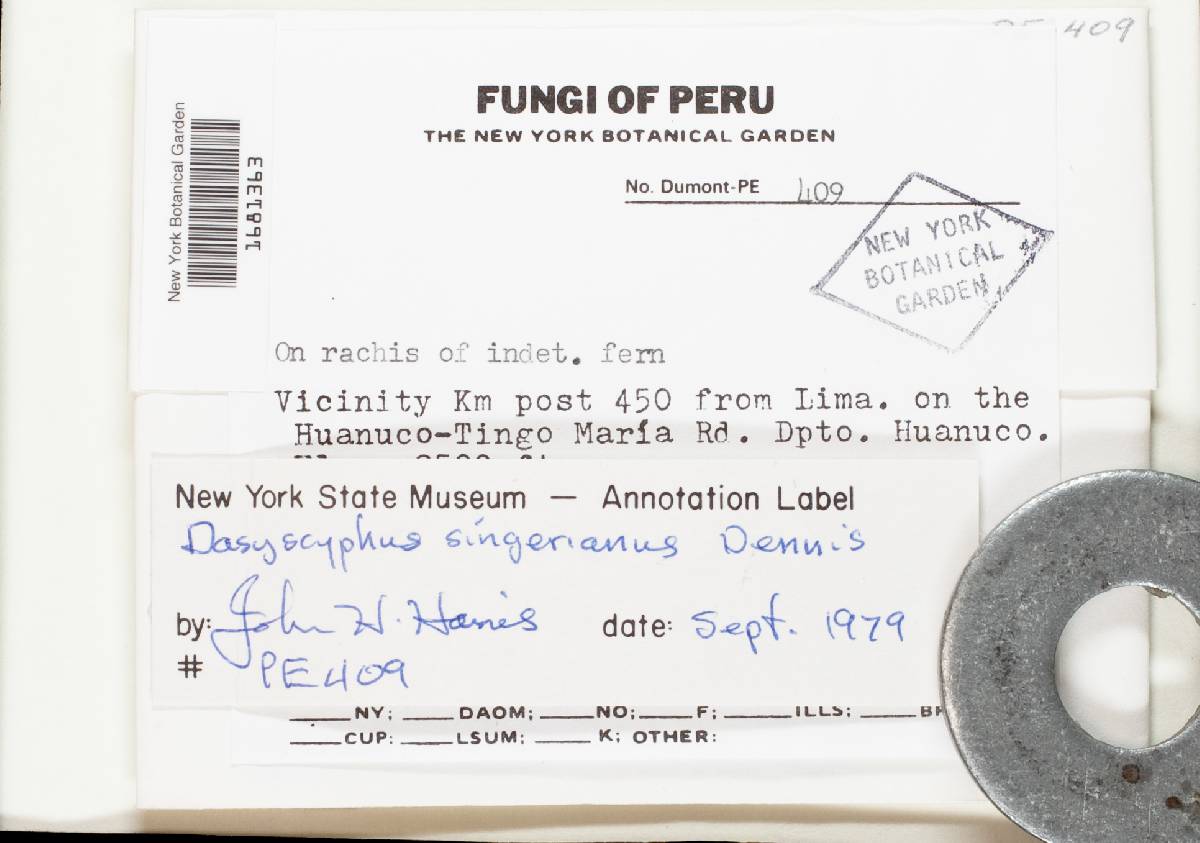 409
FUNGI OF PERU
THE NEW YORK BOTANICAL GARDEN
No. Dumont-PE 409
NEW YORK
BOTANICAL
GARDEN
New York Botanical Garden
1681363
On rachis of indet. fern
Vicinity Km post 450 from Lima. on the
Huanuco-Tingo María Rd. Dpto. Huanuco.
New York State Museum — Annotation Label
Dasyscyphus singerianus Dennis
by: John H. Haines date: Sept. 1979
# PE409
____NY; ____DAOM; ____NO; ____F; ____ILLS; ____
____CUP: ____LSUM; ____ K; OTHER: